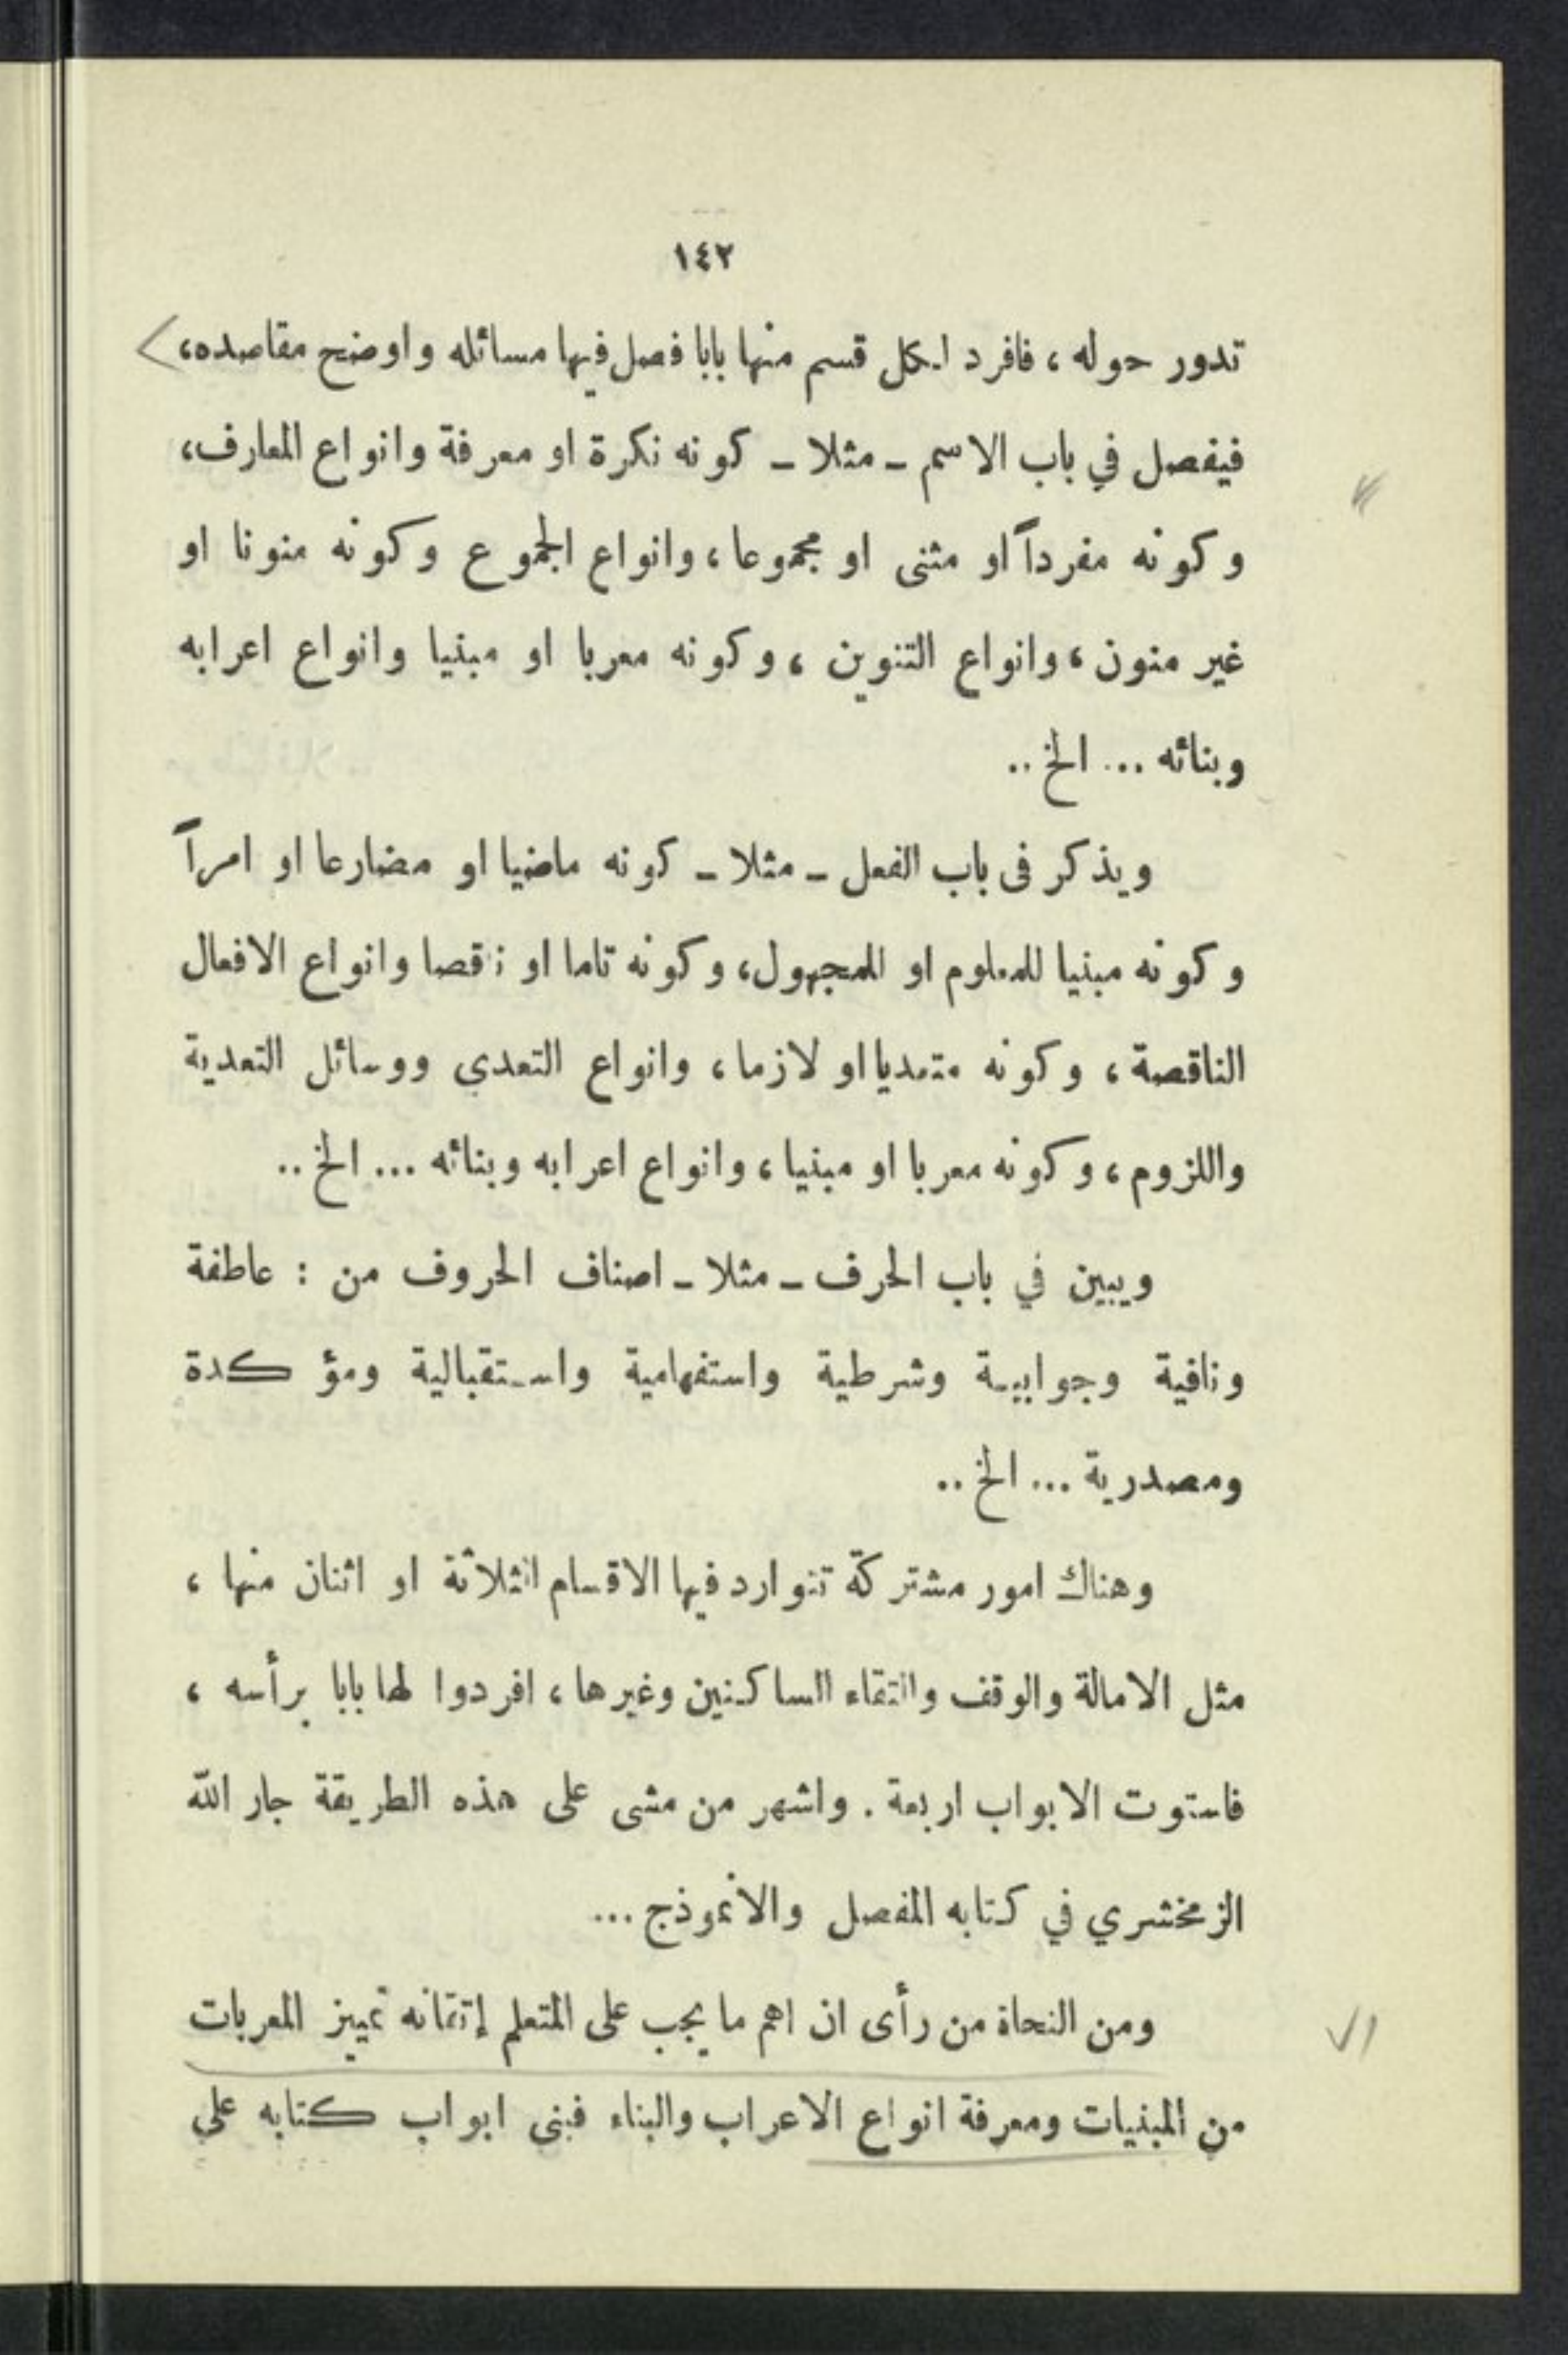 ١٤٢
تدور حوله ، فافرد لكل قسم منها بابا فصل فيها مسائله واوضح مقاصده،
فيفصل في باب الاسم ـ مثلا ـ كونه نكرة او معرفة وانواع المعارف،
وكونه مفرداً او مثنى او مجموعا ، وانواع الجموع وكونه منونا او
غير منون ، وانواع التنوين ، وكونه معربا او مبنيا وانواع اعرابه
وبنائه ... الخ ..
ويذكر فى باب الفعل ـ مثلا ـ كونه ماضيا او مضارعا او امراً
وكونه مبنيا للمعلوم او للمجهول، وكونه تاما او ناقصا وانواع الافعال
الناقصة ، وكونه متعديا او لازما ، وانواع التعدي ووسائل التعدية
واللزوم ، وكونه معربا او مبنيا ، وانواع اعرابه وبنائه ... الخ ..
ويبين في باب الحرف ـ مثلا ـ اصناف الحروف من : عاطفة
ونافية وجوابية وشرطية واستفهامية واستقبالية ومؤكدة
ومصدرية ... الخ ..
وهناك امور مشتركة تتوارد فيها الاقسام الثلاثة او اثنان منها ،
مثل الامالة والوقف والتقاء الساكنين وغيرها ، افردوا لها بابا برأسه ،
فاستوت الابواب اربعة . واشهر من مشى على هذه الطريقة جار الله
الزمخشري في كتابه المفصل والانموذج ...
ومن النحاة من رأى ان اهم ما يجب على المتعلم إتقانه تمييز المعربات
من المبنيات ومعرفة انواع الاعراب والبناء فبنى ابواب كتابه على